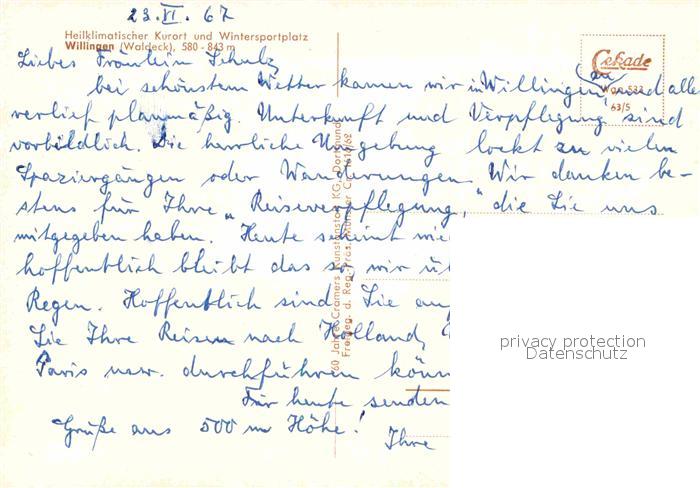 23.VI.67
Heilklimatischer Kurort und Wintersportplatz
Willingen (Waldeck), 580 - 843 m
Cekade
63/5
Liebes Fräulein Schulz,
bei schönstem Wetter kamen wir in Willingen an und alles
verlief planmäßig. Unterkunft und Verpflegung sind
vorbildlich. Die herrliche Umgebung lockt zu vielen
Spaziergängen oder Wanderungen. Wir danken be-
stens für Ihre „Reiseverpflegung," die Sie uns
mitgegeben haben. Heute scheint
hoffentlich bleibt das so, wir
Regen. Hoffentlich sind Sie
Sie Ihre Reisen nach Holland,
Paris usw. durchführen
Für heute senden
Grüße aus 500 m Höhe!
Ihre
60 Jahre Cramers Kunstanstalt KG., Dortmund
privacy protection
Datenschutz